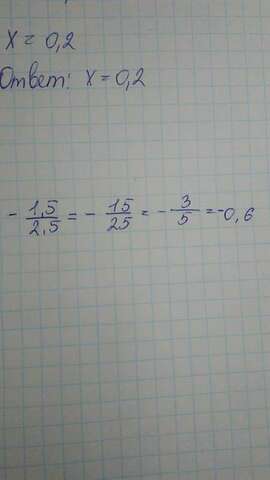 x = 0,2
Ответ: x = 0,2
- 1,5/2,5 = - 15/25 = - 3/5 = -0,6